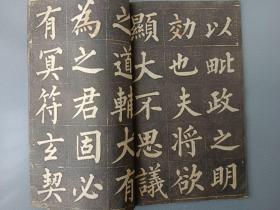 以毗政之明
効也夫将欲
顯大不思議
之道輔大有
為之君固必
有冥符玄契